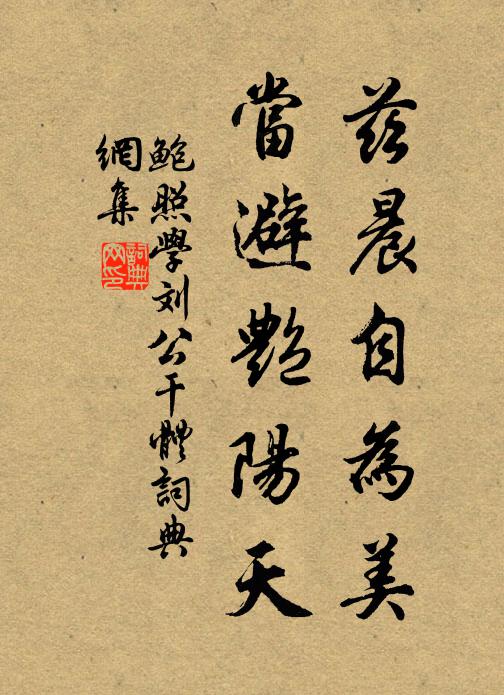 茲晨自為美
當避艷陽天
鲍照學刘公干體詞典
網集
詞典
网印